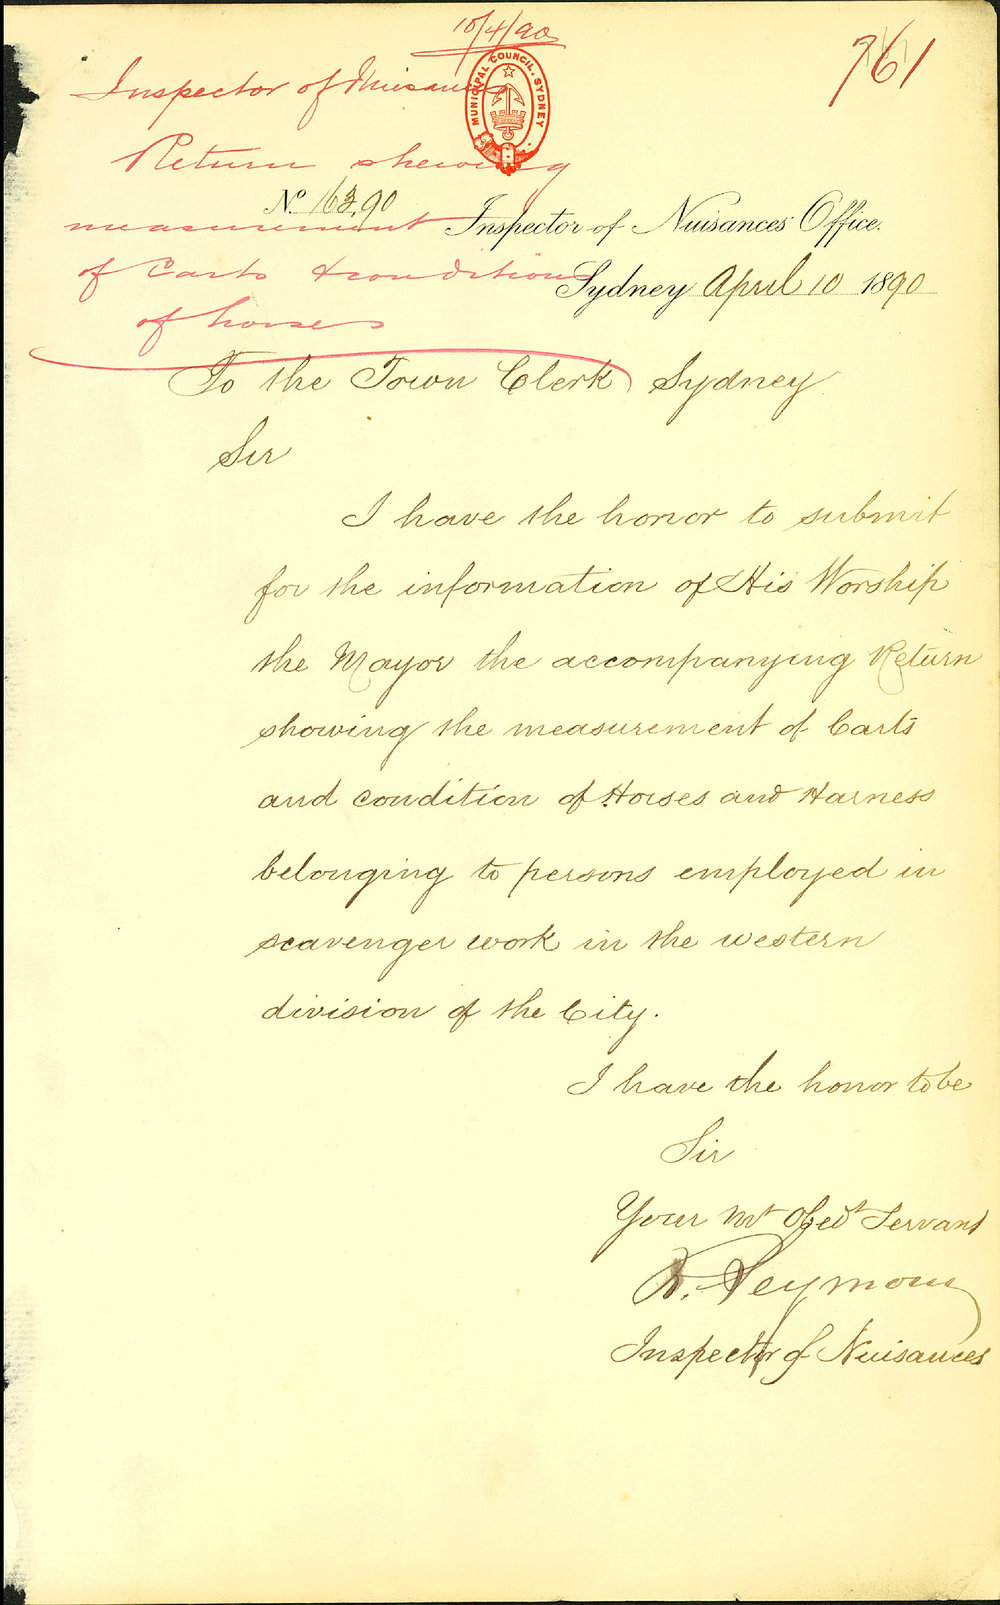 10/4/90
761
Inspector of Nuisances
MUNICIPAL COUNCIL. SYDNEY
Return shewing
measurement
of Carts & condition
of horses
No. 163.90
Inspector of Nuisances' Office.
Sydney April 10 1890
To the Town Clerk Sydney
Sir
I have the honor to submit
for the information of His Worship
the Mayor the accompanying Return
showing the measurement of Carts
and condition of Horses and Harness
belonging to persons employed in
scavenger work in the western
division of the City.
I have the honor to be
Sir
Your Mt Obedt Servant
R. Seymour
Inspector of Nuisances